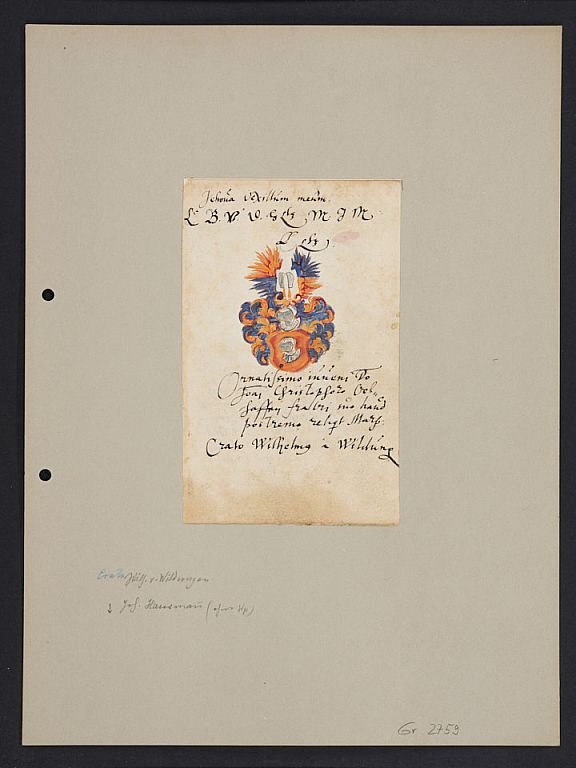 Jehova vexillum meum.
L B V D G M J M
Ornatissimo iuveni Do
Joan Christophoro Oel=
haffen fratri suo haud
postremo reliqt Marp.
Crato Wilhelmg a Wildung
Crato Wilh. v. Wildungen
2 Joh. Hausmann (ohne Wp)
Gr 2759